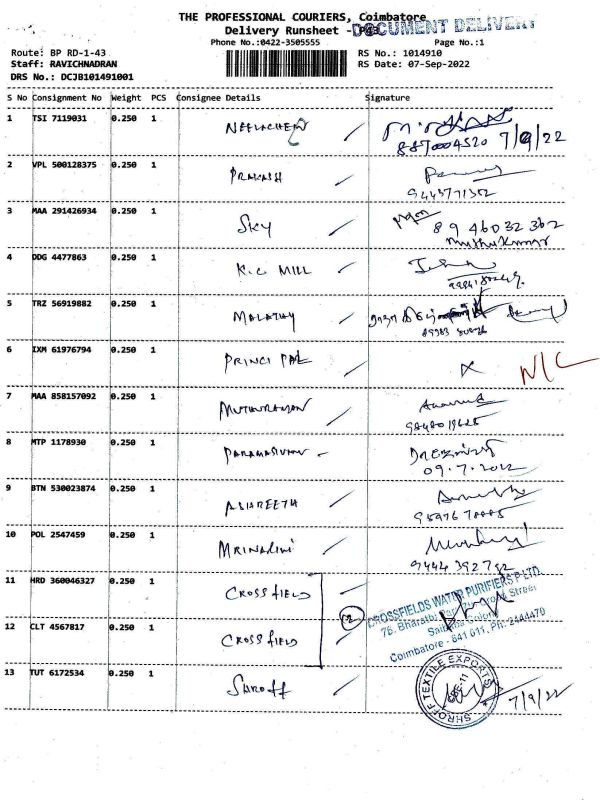 THE PROFESSIONAL COURIERS, Coimbatore
Delivery Runsheet -
DOCUMENT DELIVERY
Phone No.:0422-3505555
Page No.:1
Route: BP RD-1-43
RS No.: 1014910
Staff: RAVICHNADRAN
RS Date: 07-Sep-2022
DRS No.: DCJB101491001
S No Consignment No Weight PCS Consignee Details Signature
1 TSI 7119031 0.250 1 7/9/22
8870004520
2 VPL 500128375 0.250 1 PRAKASH
9443771352
3 MAA 291426934 0.250 1 SKY 8946032362
Muthukumar
4 DDG 4477863 0.250 1 K.C MILL
5 TRZ 56919882 0.250 1 MALATHY
6 IXM 61976794 0.250 1 PRINCIPAL X N/C
7 MAA 858157092 0.250 1 MUTHURAMAN
8 MTP 1178930 0.250 1 PARAMASIVAM -
09.7.2022
9 BTN 530023874 0.250 1
10 POL 2547459 0.250 1 MRINALINI
9444 392792
11 HRD 360046327 0.250 1 CROSSFIELD
CROSSFIELDS WATER PURIFIERS P LTD
76, Bharathi Cross Street
12 CLT 4567817 0.250 1 CROSSFIELD (2)
Saibaba Colony
Coimbatore - 641 011, Ph: 2444470
13 TUT 6172534 0.250 1 SHROFF
SHROFF TEXTILE EXPORTS
CBE-11
7/9/22